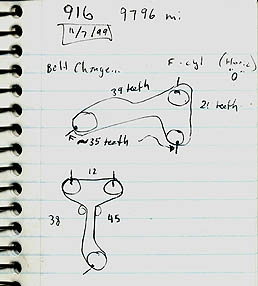 916 9796 mi
11/7/99
Belt Change... F-cyl (Horiz)
"0"
39 teeth
21 teeth
≈35 teeth
12
38 45